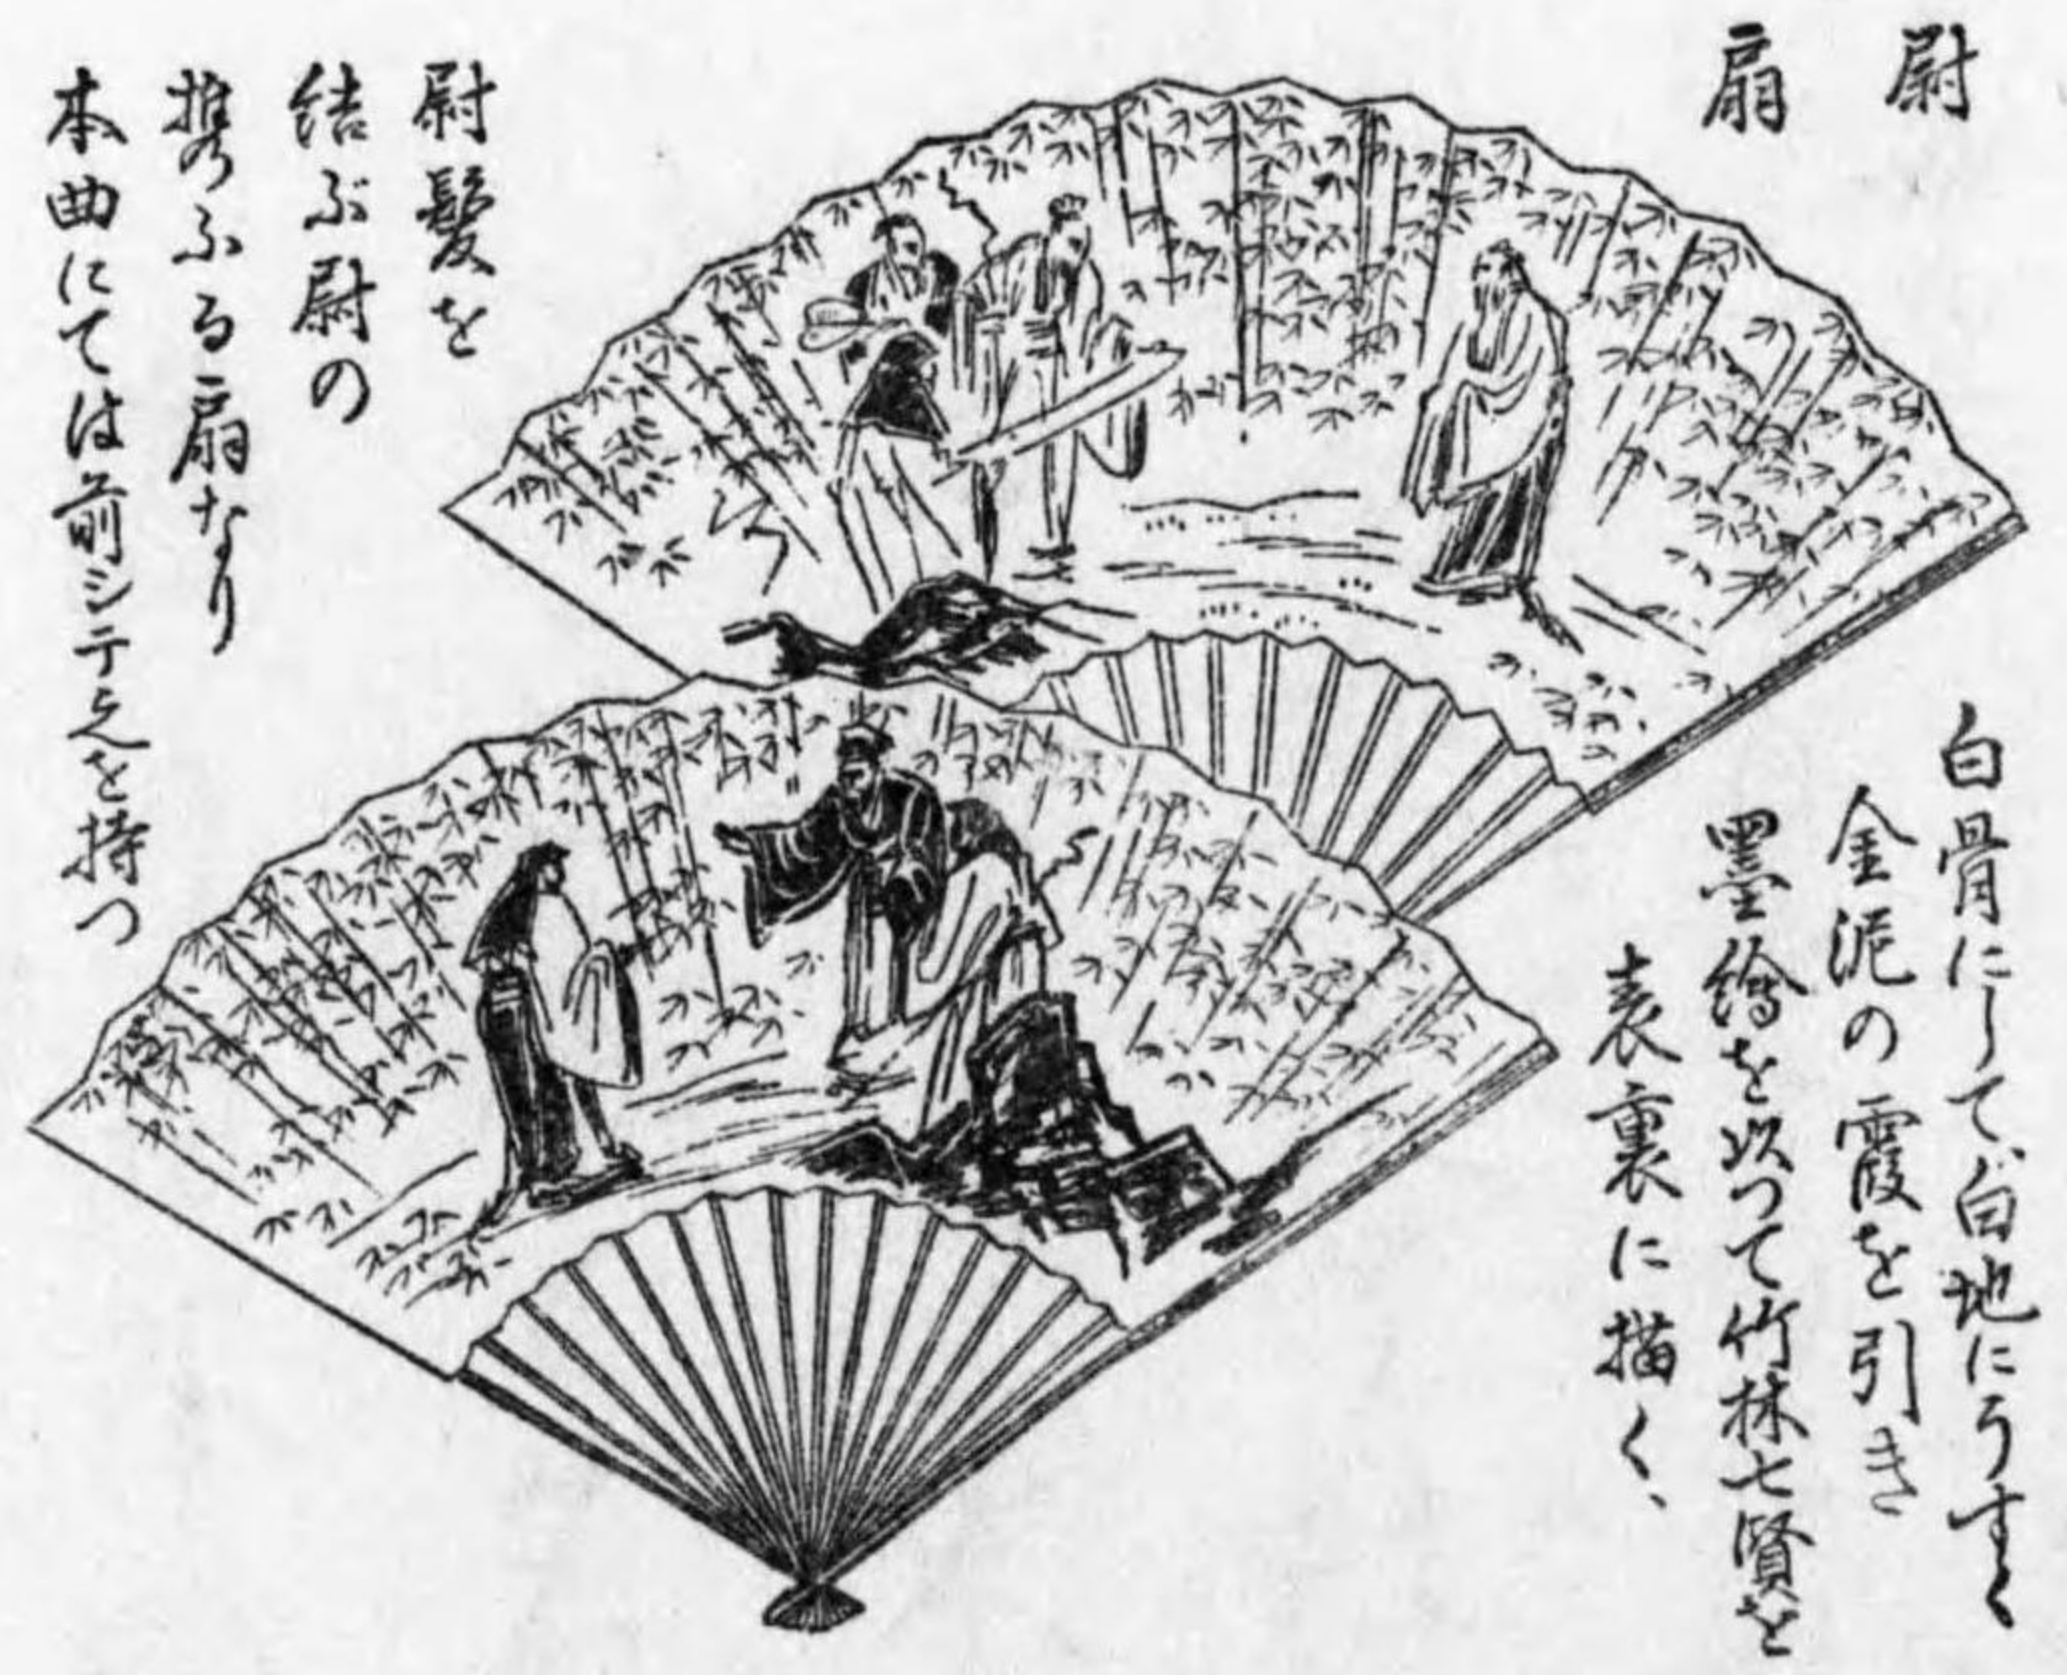 尉扇
白骨にして、白地にうすく
金泥の霞を引き
墨繪を以つて竹林七賢を
表裏に描く、
尉髪を
結ぶ尉の
携ふる扇なり
本曲にては前シテ之を持つ